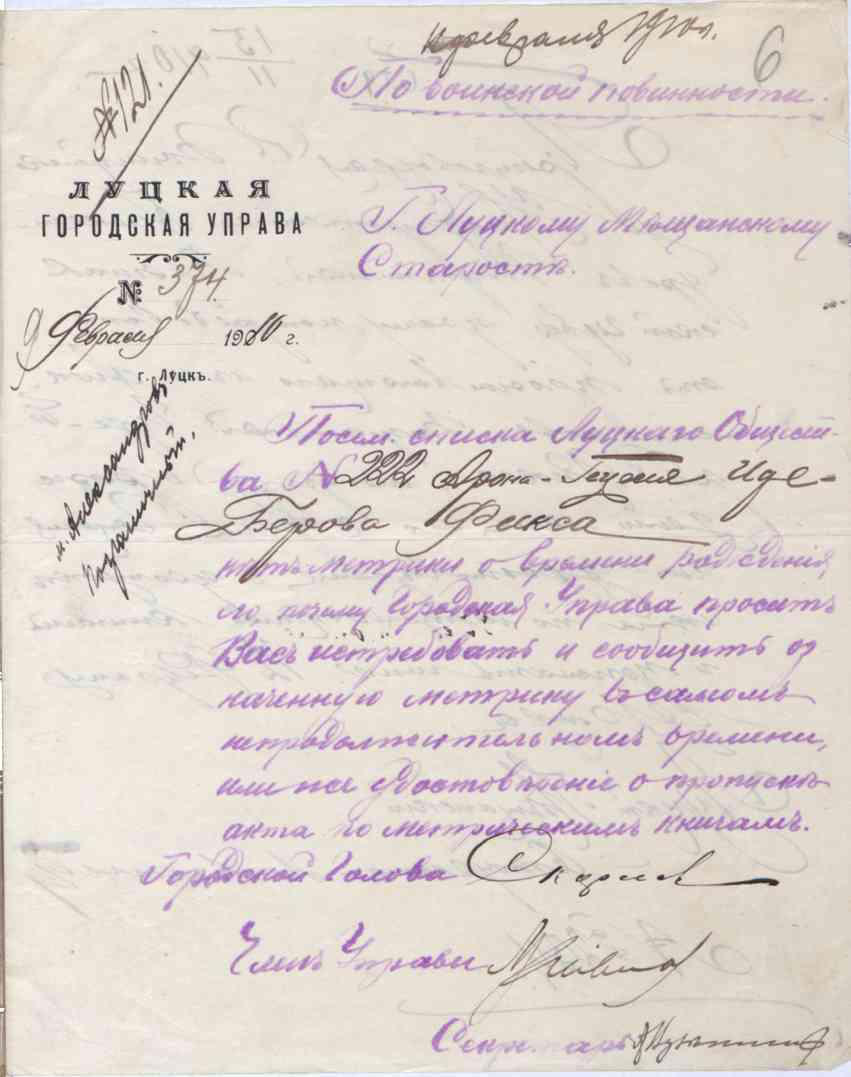 11 февраля 1910 г.
6
По воинской повинности.
№ 121.
ЛУЦКАЯ
ГОРОДСКАЯ УПРАВА
№ 374
9 Февраля 1910 г.
г. Луцкъ.
Г. Луцкому Мѣщанскому
Старостѣ.
м. Александров
Посем. списка Луцкаго Общест-
ва № 222 Арона- Иде-
Берова Фикса
нѣтъ метрики о времени рождения,
по почему Городская Управа проситъ
Васъ истребовать и сообщить оз
наченную метрику въ самомъ
непродолжительномъ времени,
или же удостовѣреніе о пропускѣ
акта по метрическимъ книгамъ.
Городской Голова
Членъ Управы
Секретарь